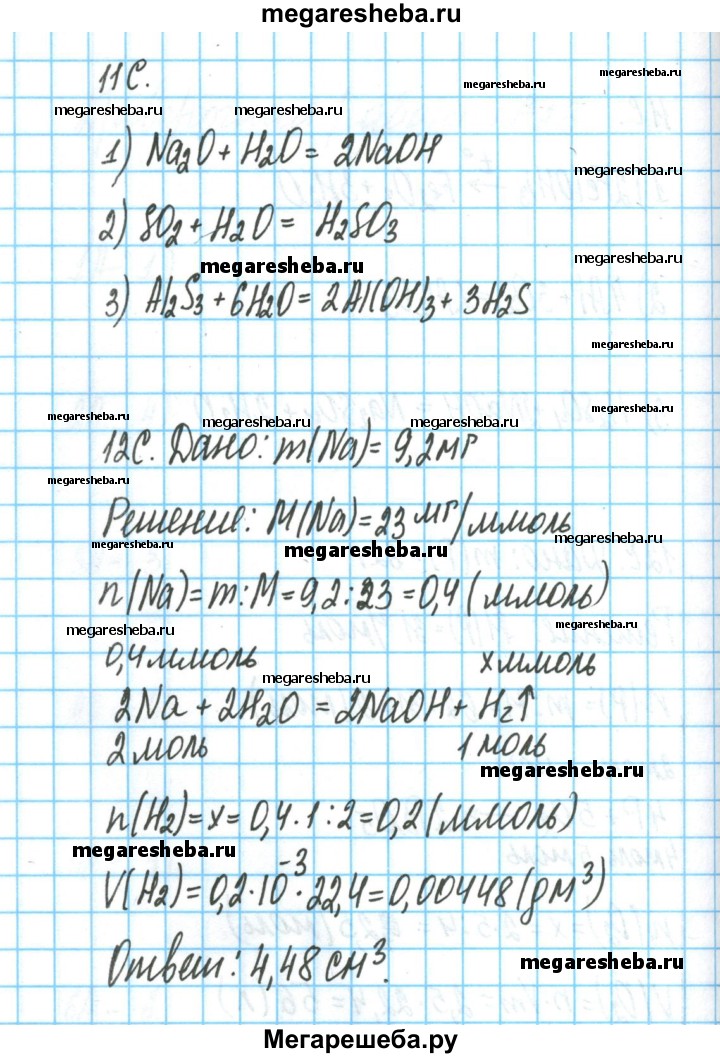 megaresheba.ru
11С.
megaresheba.ru
megaresheba.ru
megaresheba.ru
megaresheba.ru
1) Na2O + H2O = 2NaOH
megaresheba.ru
2) SO2 + H2O = H2SO3
megaresheba.ru
3) Al2S3 + 6H2O = 2Al(OH)3 + 3H2S
megaresheba.ru
megaresheba.ru
megaresheba.ru
megaresheba.ru
12С. Дано: m(Na) = 9,2мг
megaresheba.ru
Решение: M(Na) = 23 мг/ммоль
megaresheba.ru
megaresheba.ru
megaresheba.ru
n(Na) = m : M = 9,2 : 23 = 0,4 (ммоль)
megaresheba.ru
megaresheba.ru
0,4 ммоль x ммоль
megaresheba.ru
2Na + 2H2O = 2NaOH + H2↑
2 моль 1 моль
megaresheba.ru
n(H2) = x = 0,4 · 1 : 2 = 0,2 (ммоль)
megaresheba.ru
V(H2) = 0,2 · 10⁻³ · 22,4 = 0,00448 (дм³)
Ответ: 4,48 см³.
megaresheba.ru
Мегарешеба.ру